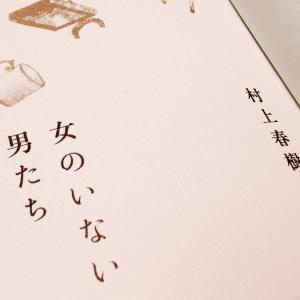 女のいない
男たち
村上春樹